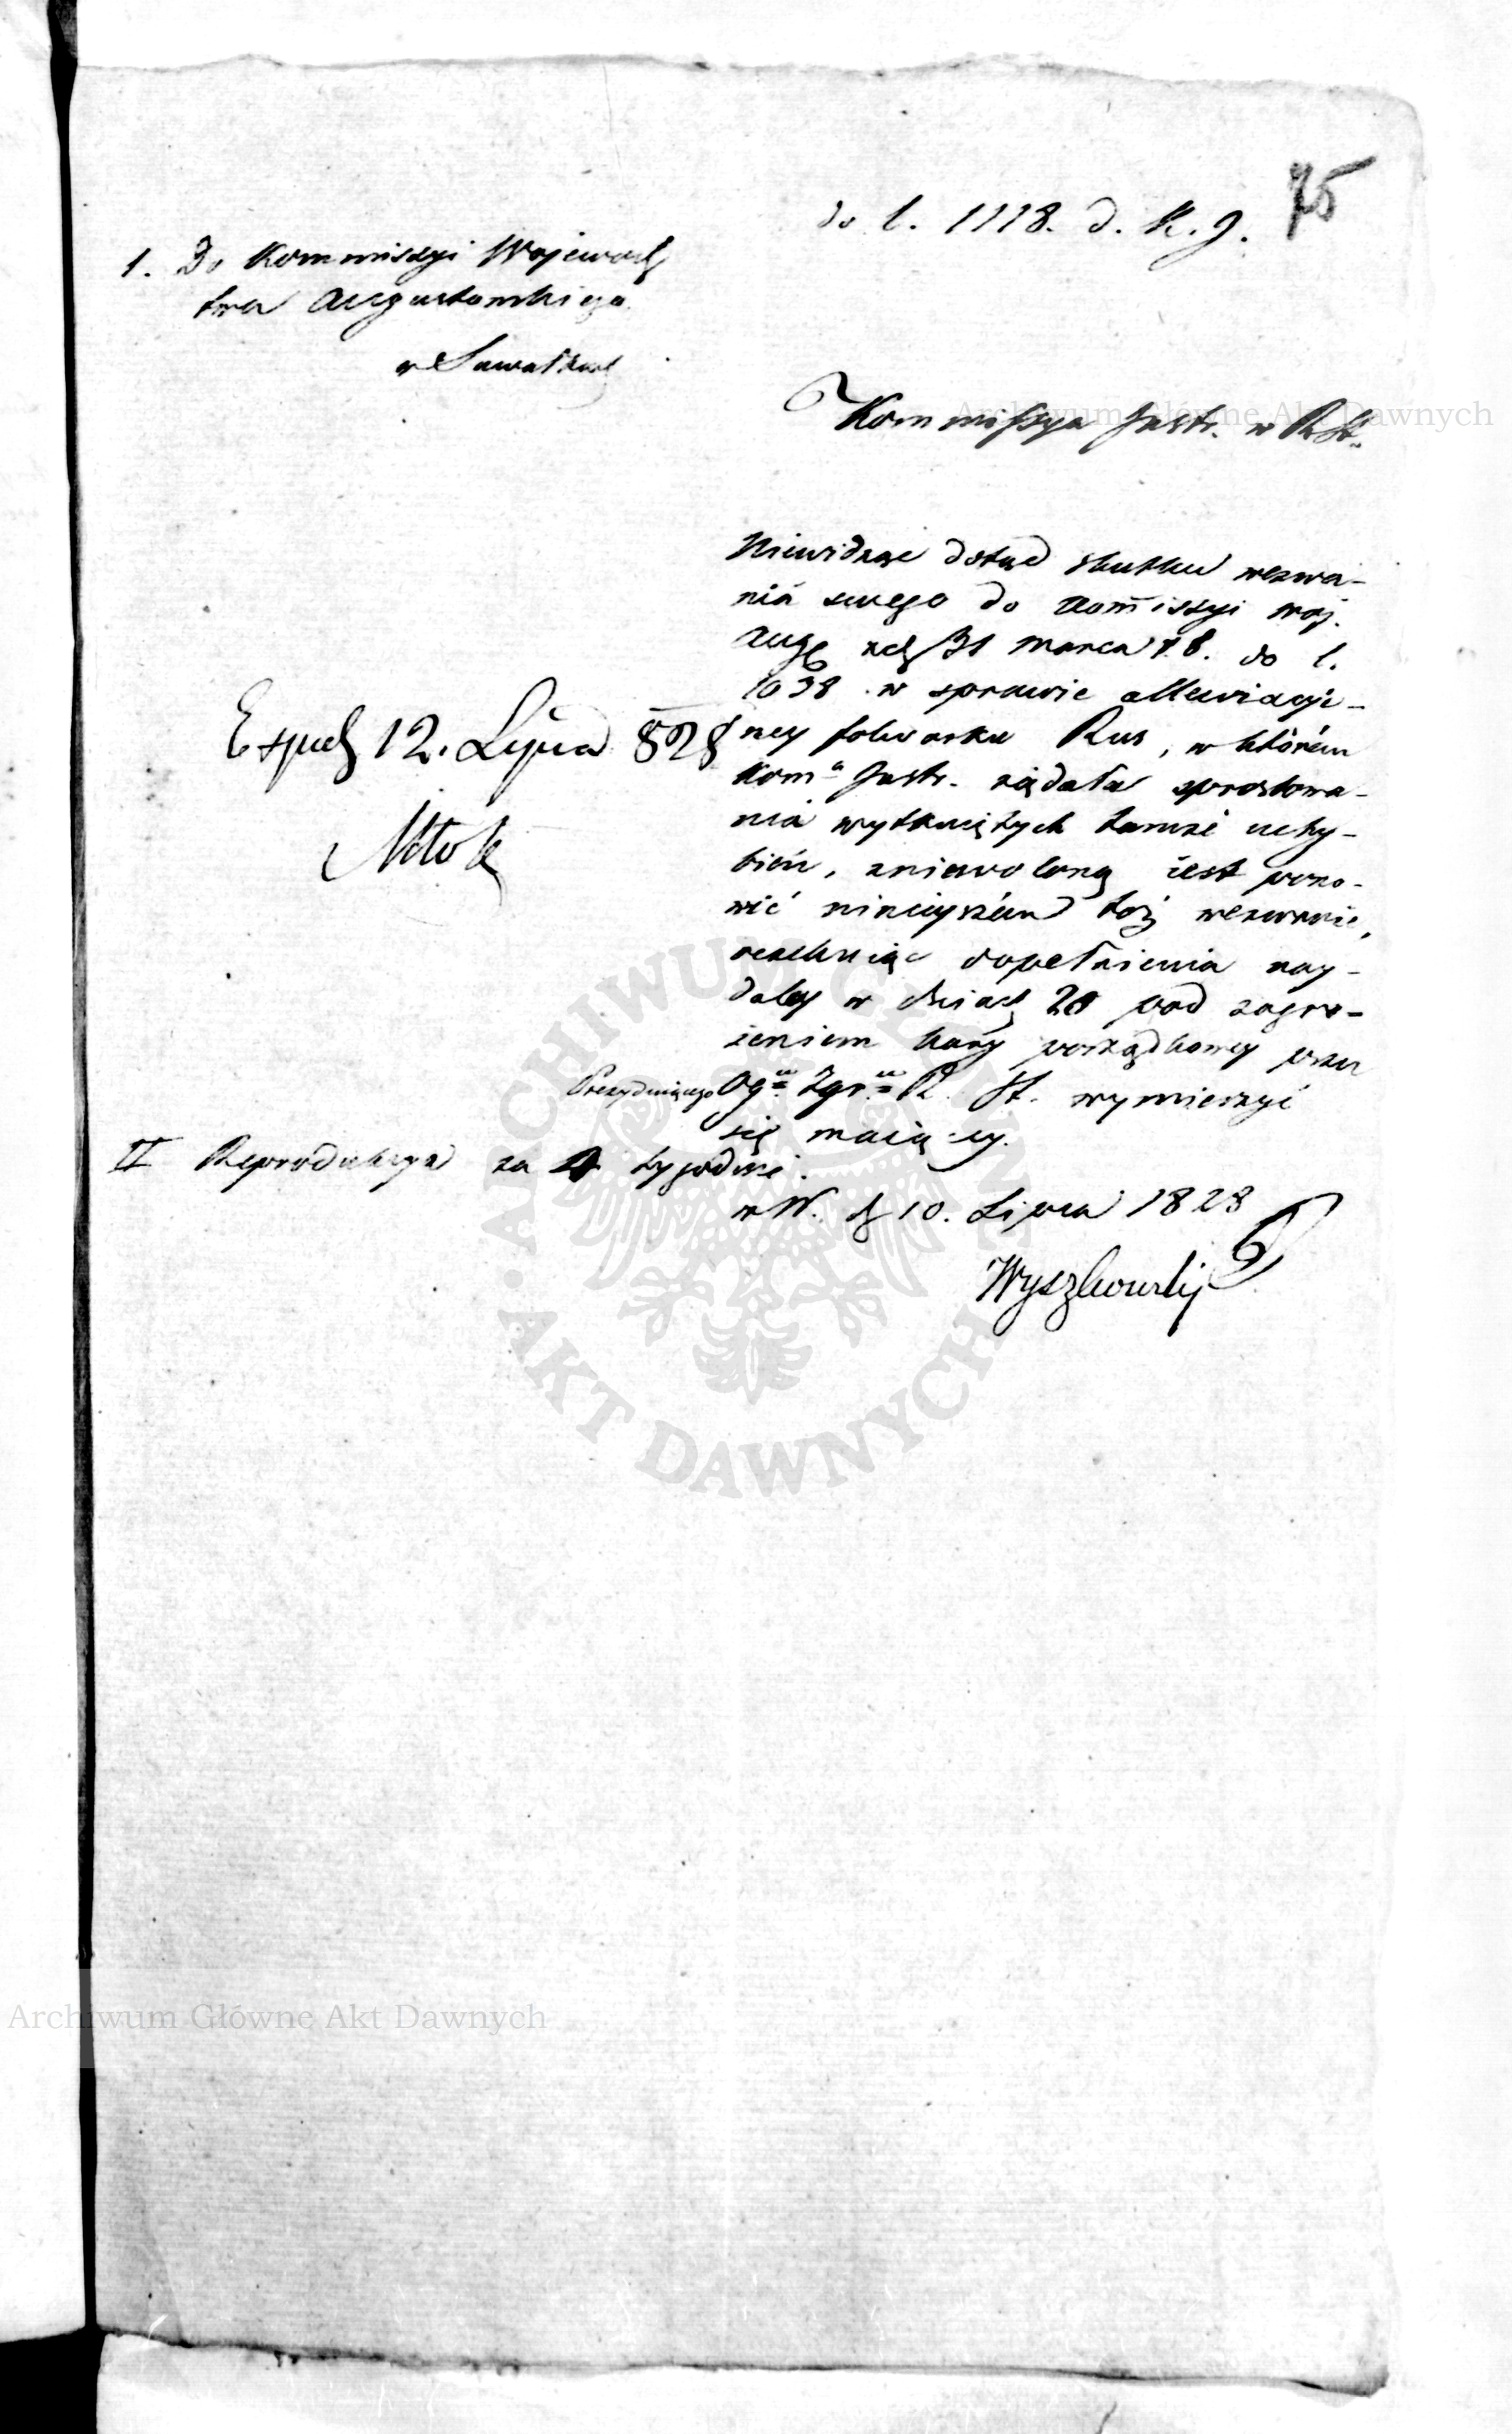 75
do l. 1118. d. K. J.
1. Do Kommissyi Wojewodz
twa Augustowskiego
w Suwałkach
Kommissya Instr. w R. St.
Niewidząc dotąd skutku wezwa-
nia swego do Kom̄issyi woj.
Aug. z d. 31 Marca r. b. do l.
1038 w sprawie allewiacyi-
ney folwarku Rus, w którém
Kom.a Instr. żądała sprostowa-
nia wytkniętych tamże uchy-
bień, zniewoloną iest pono-
wić ninieyszém toż wezwanie,
dopełnienia nay-
daley w dniach 20 pod zagro-
żeniem kary porządkowey przez
Prezyduiącego Og. Zgr. R. St. wymierzyć
się maiącey.
w W. d. 10. Lipca 1828
Wyszkowski
Exped 12. Lipca 828
II Reprodukcya za 4 tygodni.
Archiwum Główne Akt Dawnych
ARCHIWUM GŁÓWNE AKT DAWNYCH
Archiwum Główne Akt Dawnych